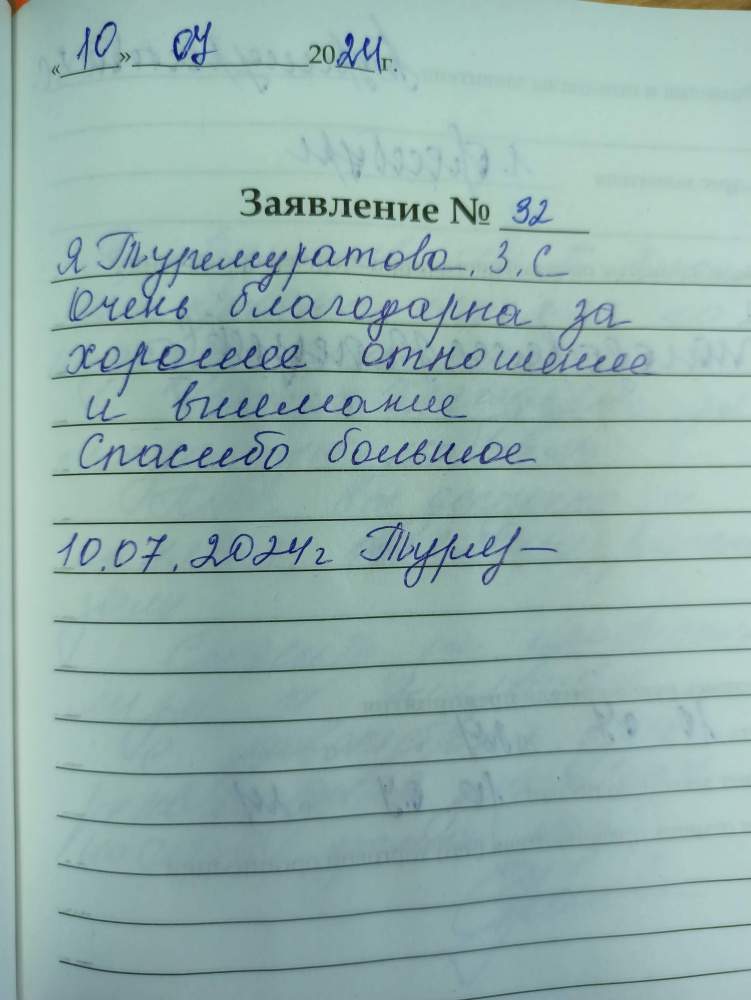 «10» 07 2024 г.
Заявление № 32
Я Туремуратова. З. С
Очень благодарна за
хорошее отношение
и внимание
Спасибо большое
10.07.2024 г